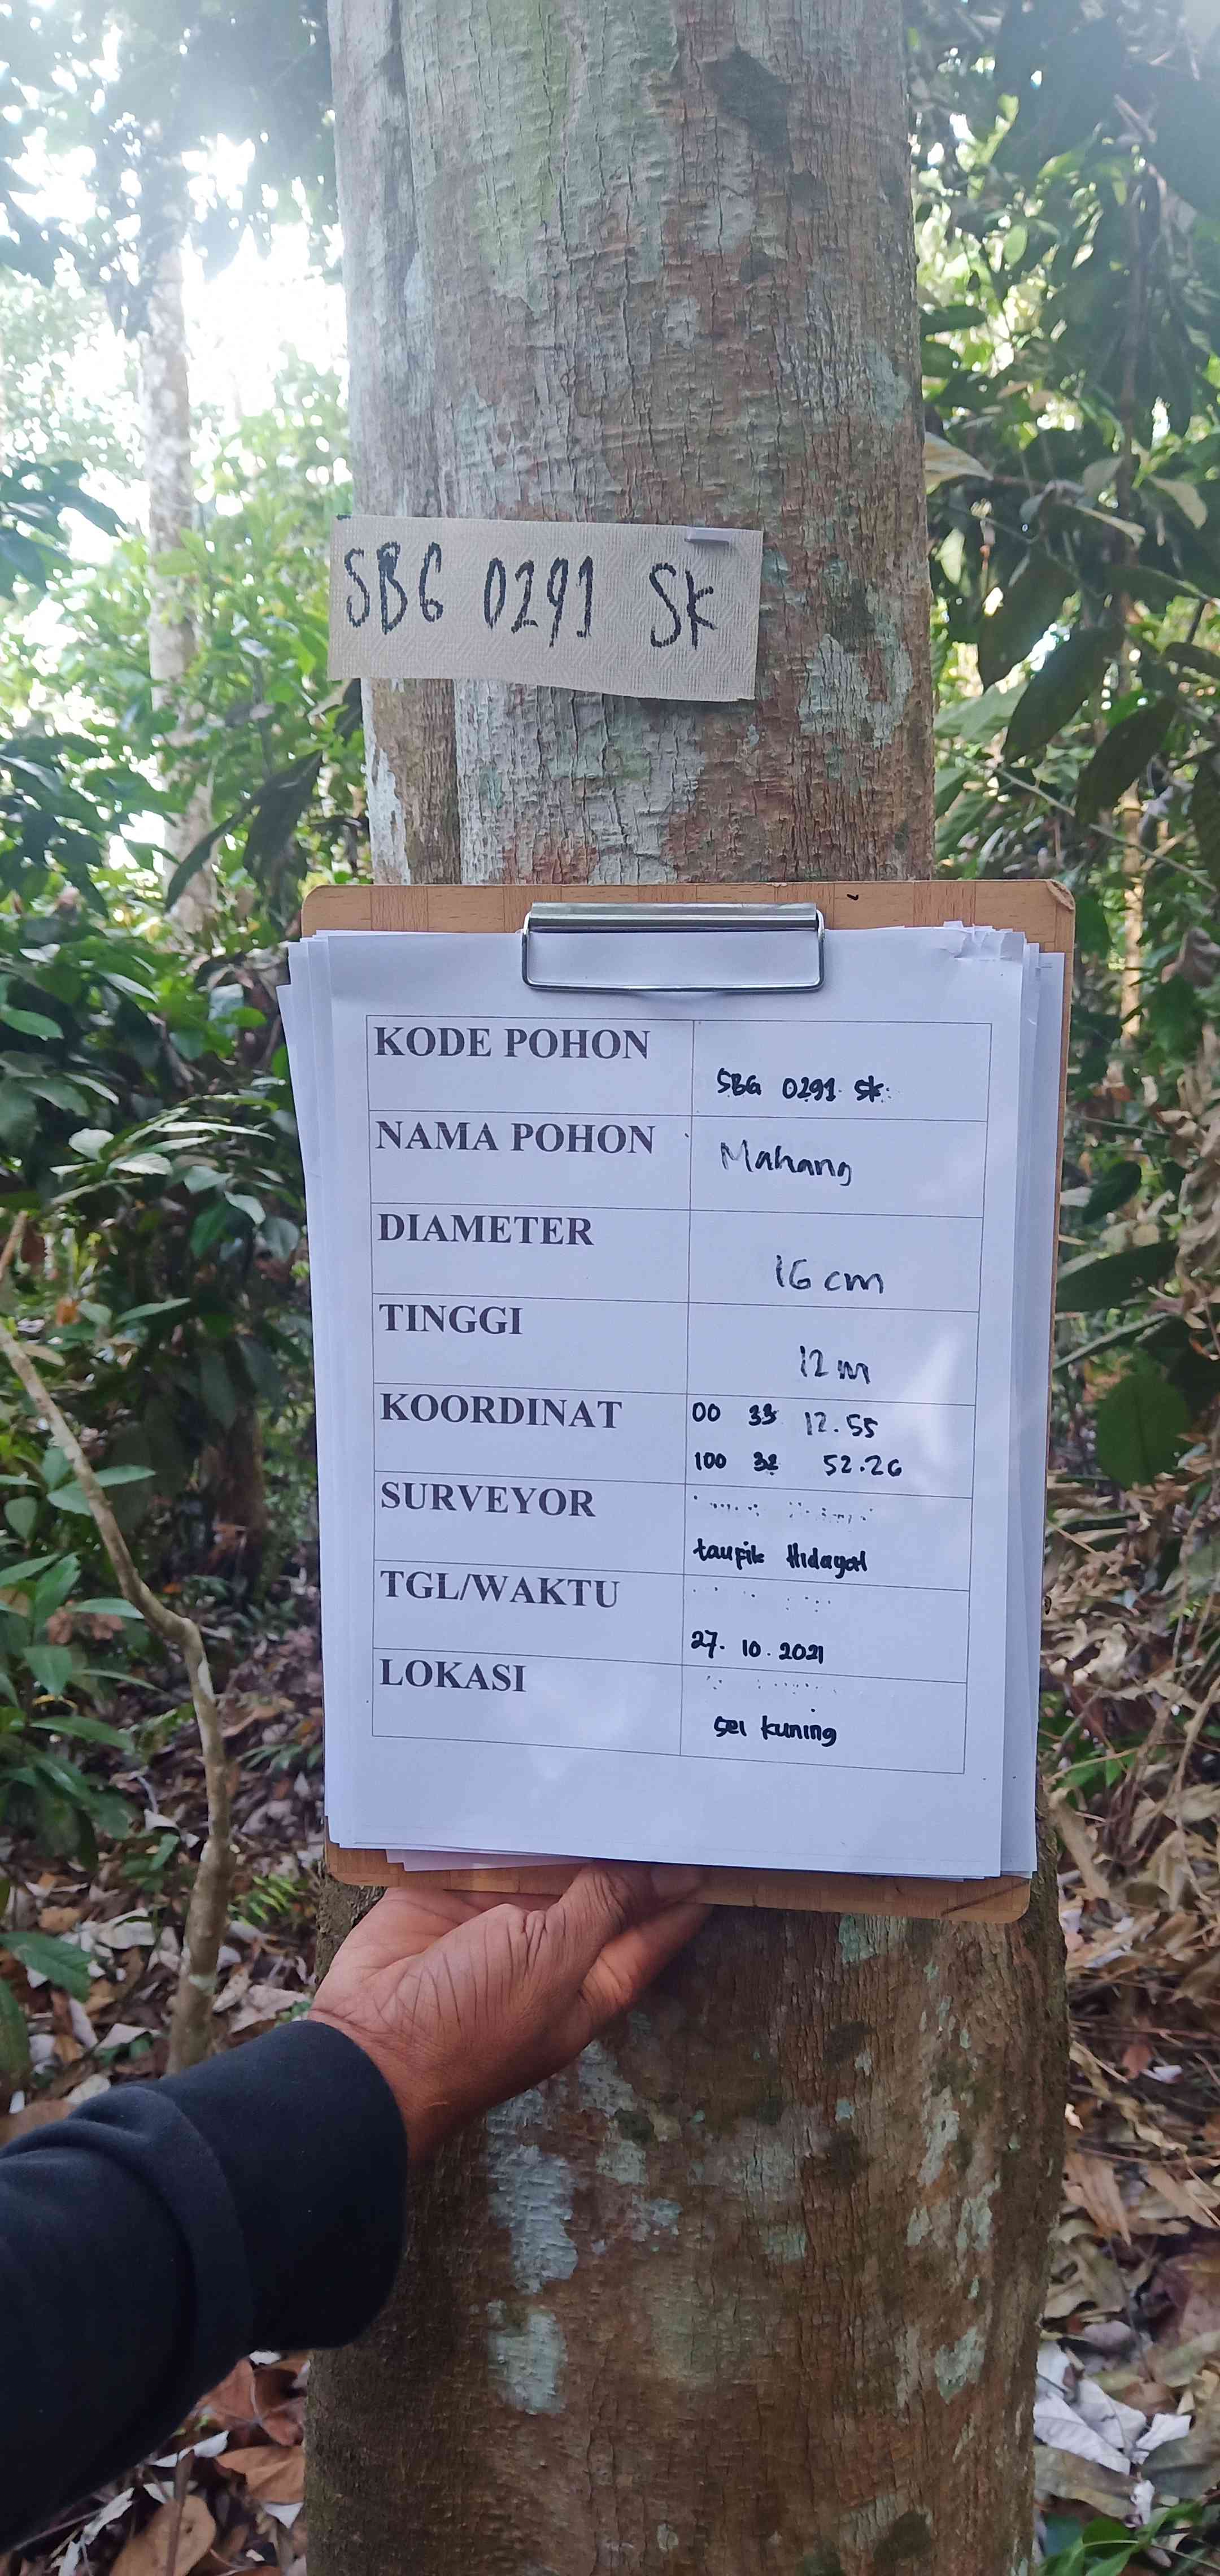 SBG 0291 Sk
KODE POHON
SBG 0291 Sk
NAMA POHON
Mahang
DIAMETER
16 cm
TINGGI
12 m
KOORDINAT
00 33 12.55
100 32 52.26
SURVEYOR
taufik Hidayat
TGL/WAKTU
27. 10. 2021
LOKASI
sei kuning